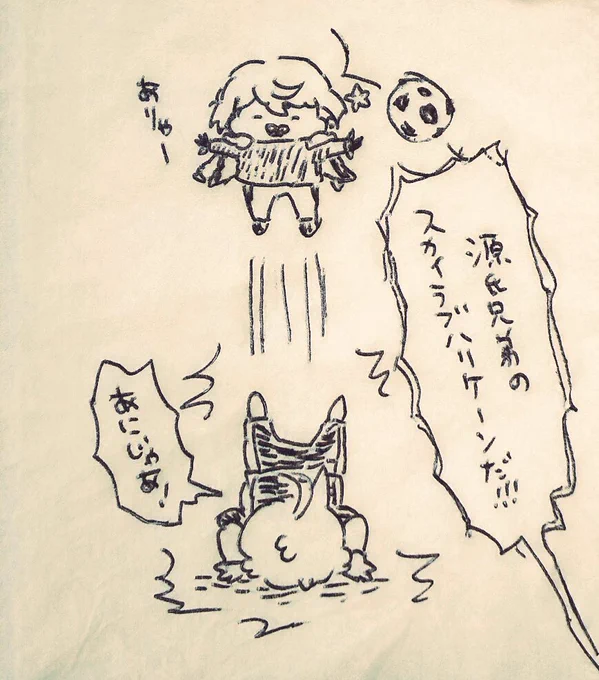 源氏兄弟の
スカイラブハリケーンだ!!!
ありゃー
あにじゃあ!